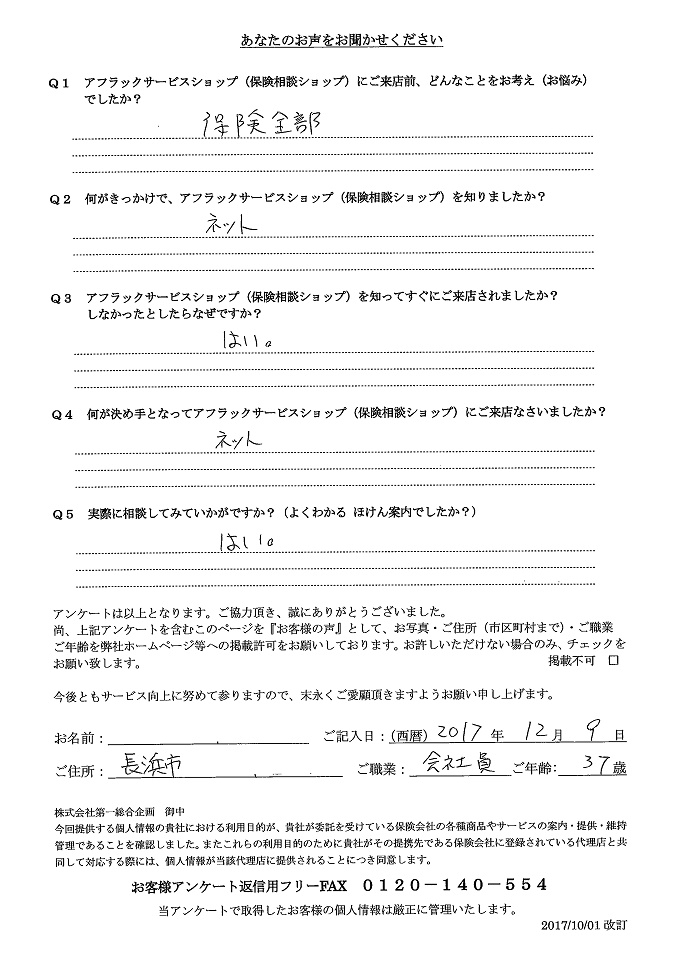 あなたのお声をお聞かせください
Q1 アフラックサービスショップ（保険相談ショップ）にご来店前、どんなことをお考え（お悩み）
でしたか？
保険全部
Q2 何がきっかけで、アフラックサービスショップ（保険相談ショップ）を知りましたか？
ネット
Q3 アフラックサービスショップ（保険相談ショップ）を知ってすぐにご来店されましたか？
しなかったとしたらなぜですか？
はい。
Q4 何が決め手となってアフラックサービスショップ（保険相談ショップ）にご来店なさいましたか？
ネット
Q5 実際に相談してみていかがですか？（よくわかる ほけん案内でしたか？）
はい。
アンケートは以上となります。ご協力頂き、誠にありがとうございました。
尚、上記アンケートを含むこのページを『お客様の声』として、お写真・ご住所（市区町村まで）・ご職業
ご年齢を弊社ホームページ等への掲載許可をお願いしております。お許しいただけない場合のみ、チェックを
お願い致します。 掲載不可 □
今後ともサービス向上に努めて参りますので、末永くご愛顧頂きますようお願い申し上げます。
お名前： ご記入日：（西暦）2017 年 12 月 9 日
ご住所： 長浜市 ご職業： 会社員 ご年齢： 37 歳
株式会社第一総合企画 御中
今回提供する個人情報の貴社における利用目的が、貴社が委託を受けている保険会社の各種商品やサービスの案内・提供・維持
管理であることを確認しました。またこれらの利用目的のために貴社がその提携先である保険会社に登録されている代理店と共
同して対応する際には、個人情報が当該代理店に提供されることにつき同意します。
お客様アンケート返信用フリーFAX ０１２０－１４０－５５４
当アンケートで取得したお客様の個人情報は厳正に管理いたします。
2017/10/01 改訂